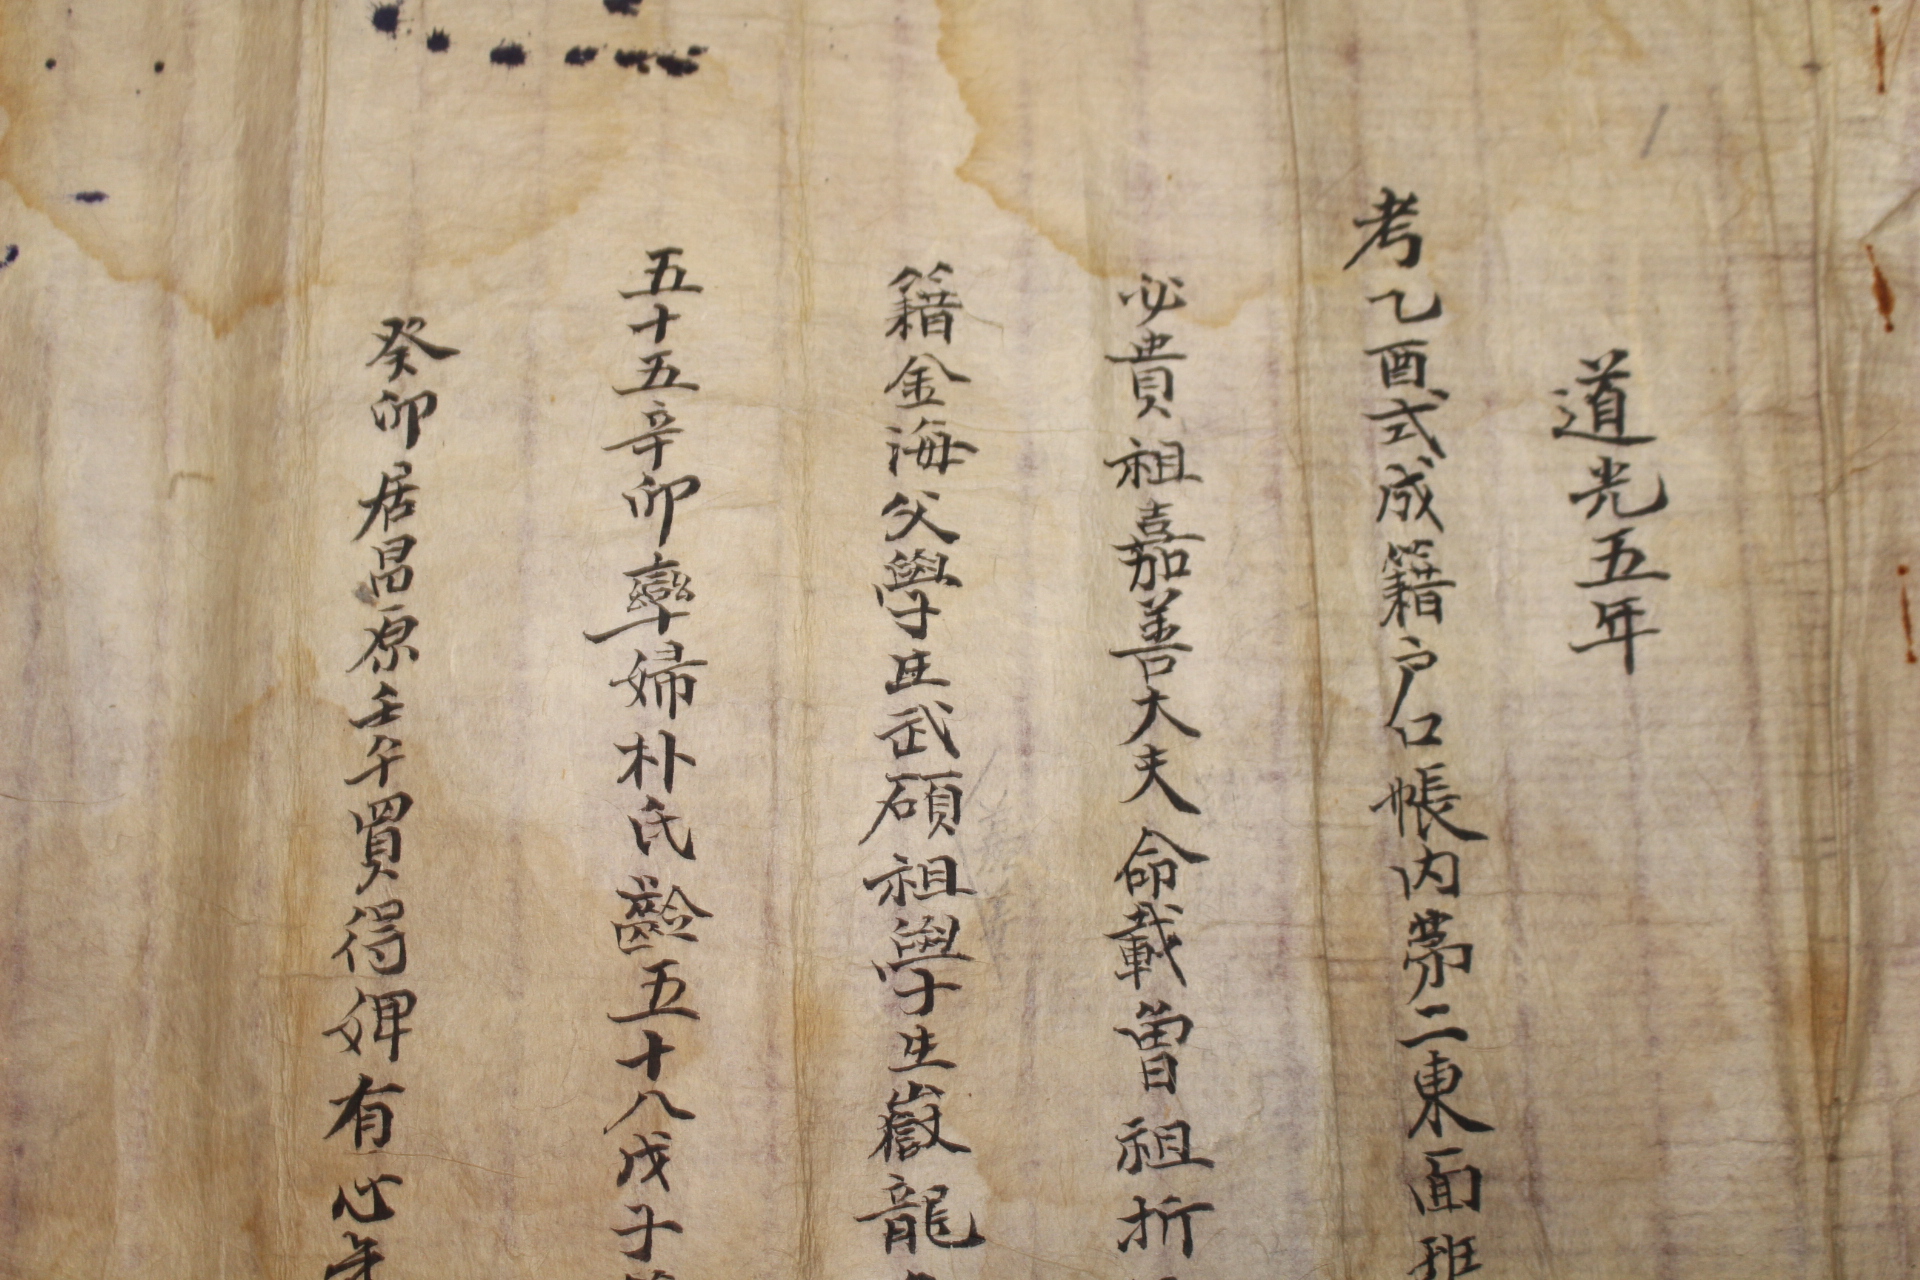 道光五年
考乙酉式成籍户口帳内第二東面班
必貴祖嘉善大夫命載曾祖折
籍金海父學生武碩祖學生嶽龍
五十五辛卯率婦朴氏齡五十八戊子
癸卯居昌原壬午買得婢有心年